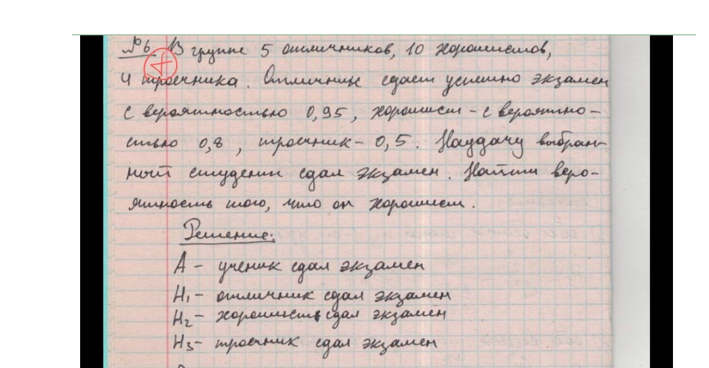 №6. В группе 5 отличников, 10 хорошистов,
4 троечника. Отличник сдает успешно экзамен
с вероятностью 0,95, хорошист - с вероятно-
стью 0,8, троечник - 0,5. Наудачу выбран-
ный студент сдал экзамен. Найти веро-
ятность того, что он хорошист.
Решение:
А - ученик сдал экзамен
H₁ - отличник сдал экзамен
H₂ - хорошист сдал экзамен
H₃ - троечник сдал экзамен